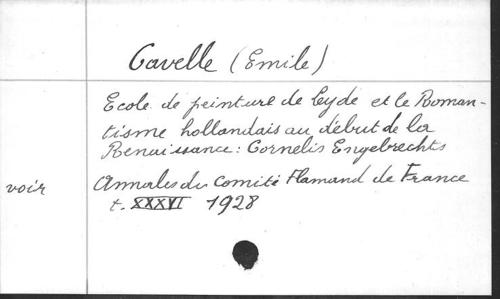 Gavelle (Emile)
Ecole de peinture de Leyde et le Roman-
tisme hollandais au début de la
Renaissance: Cornelis Engelbrechts
voir Annales du Comité Flamand de France
t. XXXVI 1928